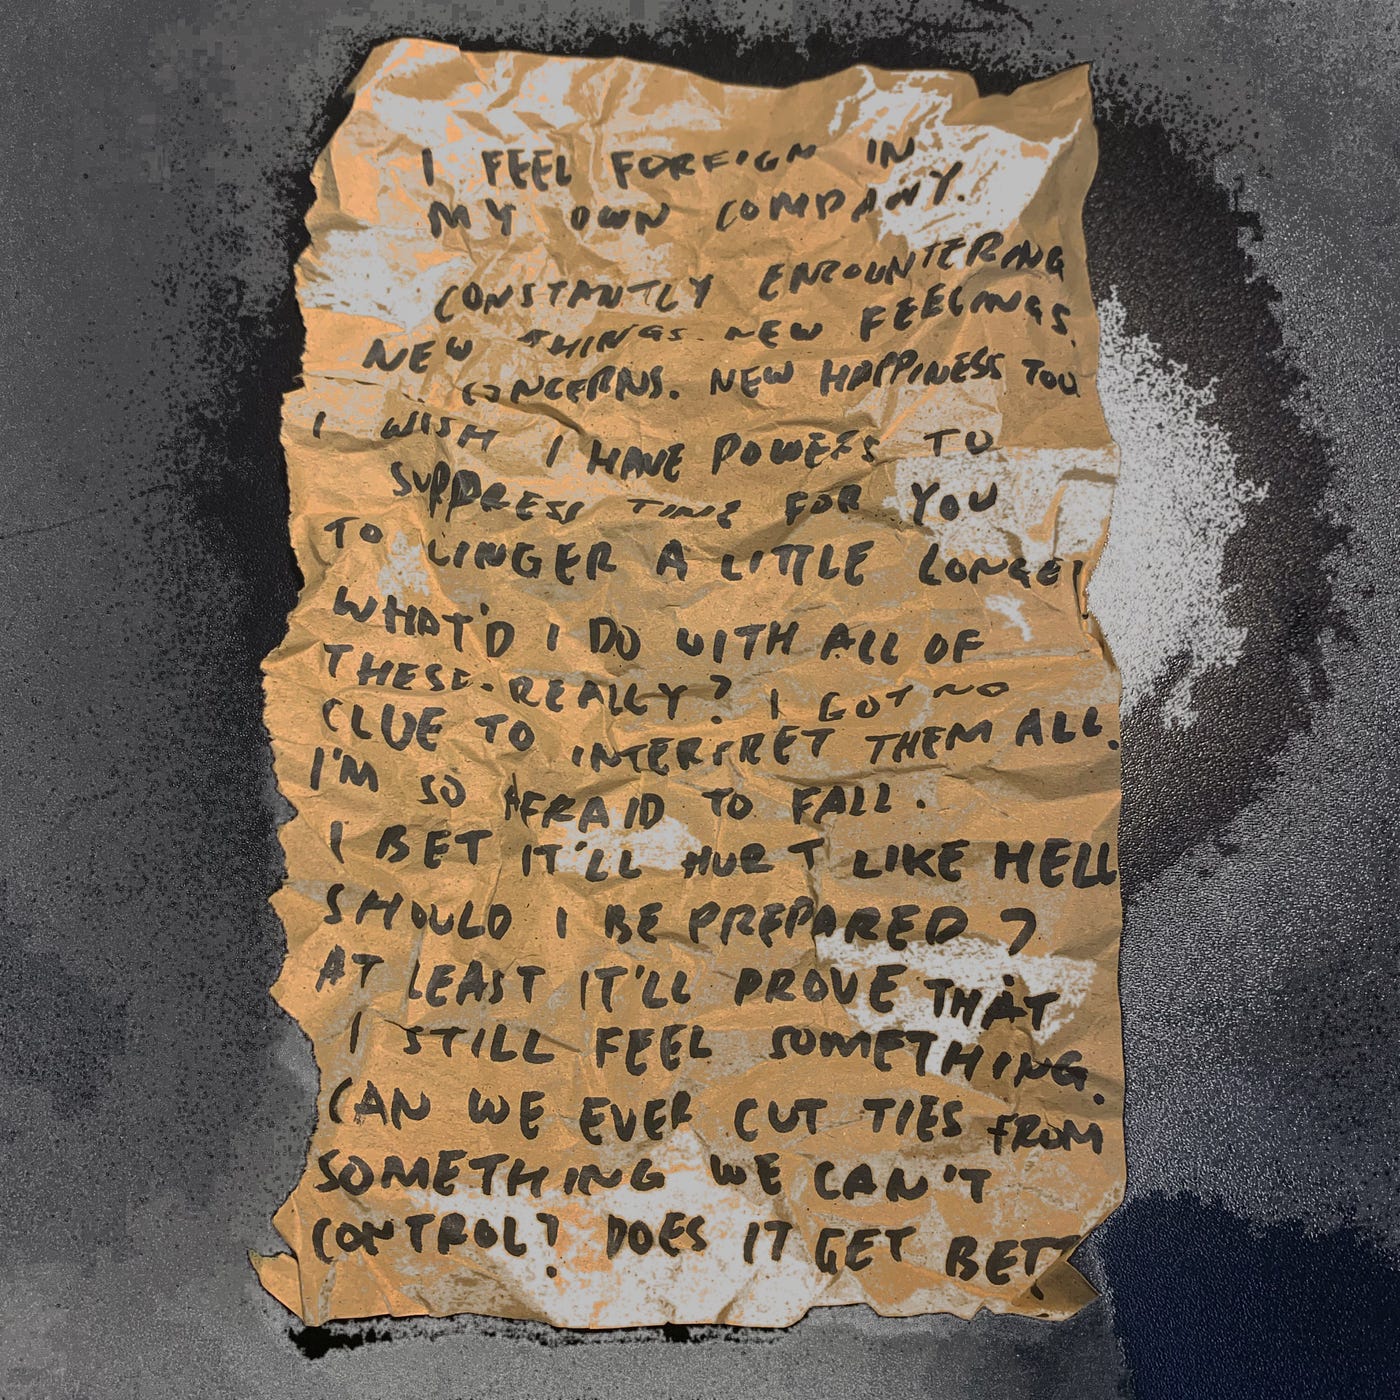 I FEEL FOREIGN IN
MY OWN COMPANY.
CONSTANTLY ENCOUNTERING
NEW THINGS. NEW FEELINGS.
CONCERNS. NEW HAPPINESS TOO
I WISH I HAVE POWERS TO
SUPPRESS TIME FOR YOU
TO LINGER A LITTLE LONGER
WHAT'D I DO WITH ALL OF
THESE. REALLY? I GOT NO
CLUE TO INTERPRET THEM ALL.
I'M SO AFRAID TO FALL.
I BET IT'LL HURT LIKE HELL
SHOULD I BE PREPARED?
AT LEAST IT'LL PROVE THAT
I STILL FEEL SOMETHING.
CAN WE EVER CUT TIES FROM
SOMETHING WE CAN'T
CONTROL? DOES IT GET BETT